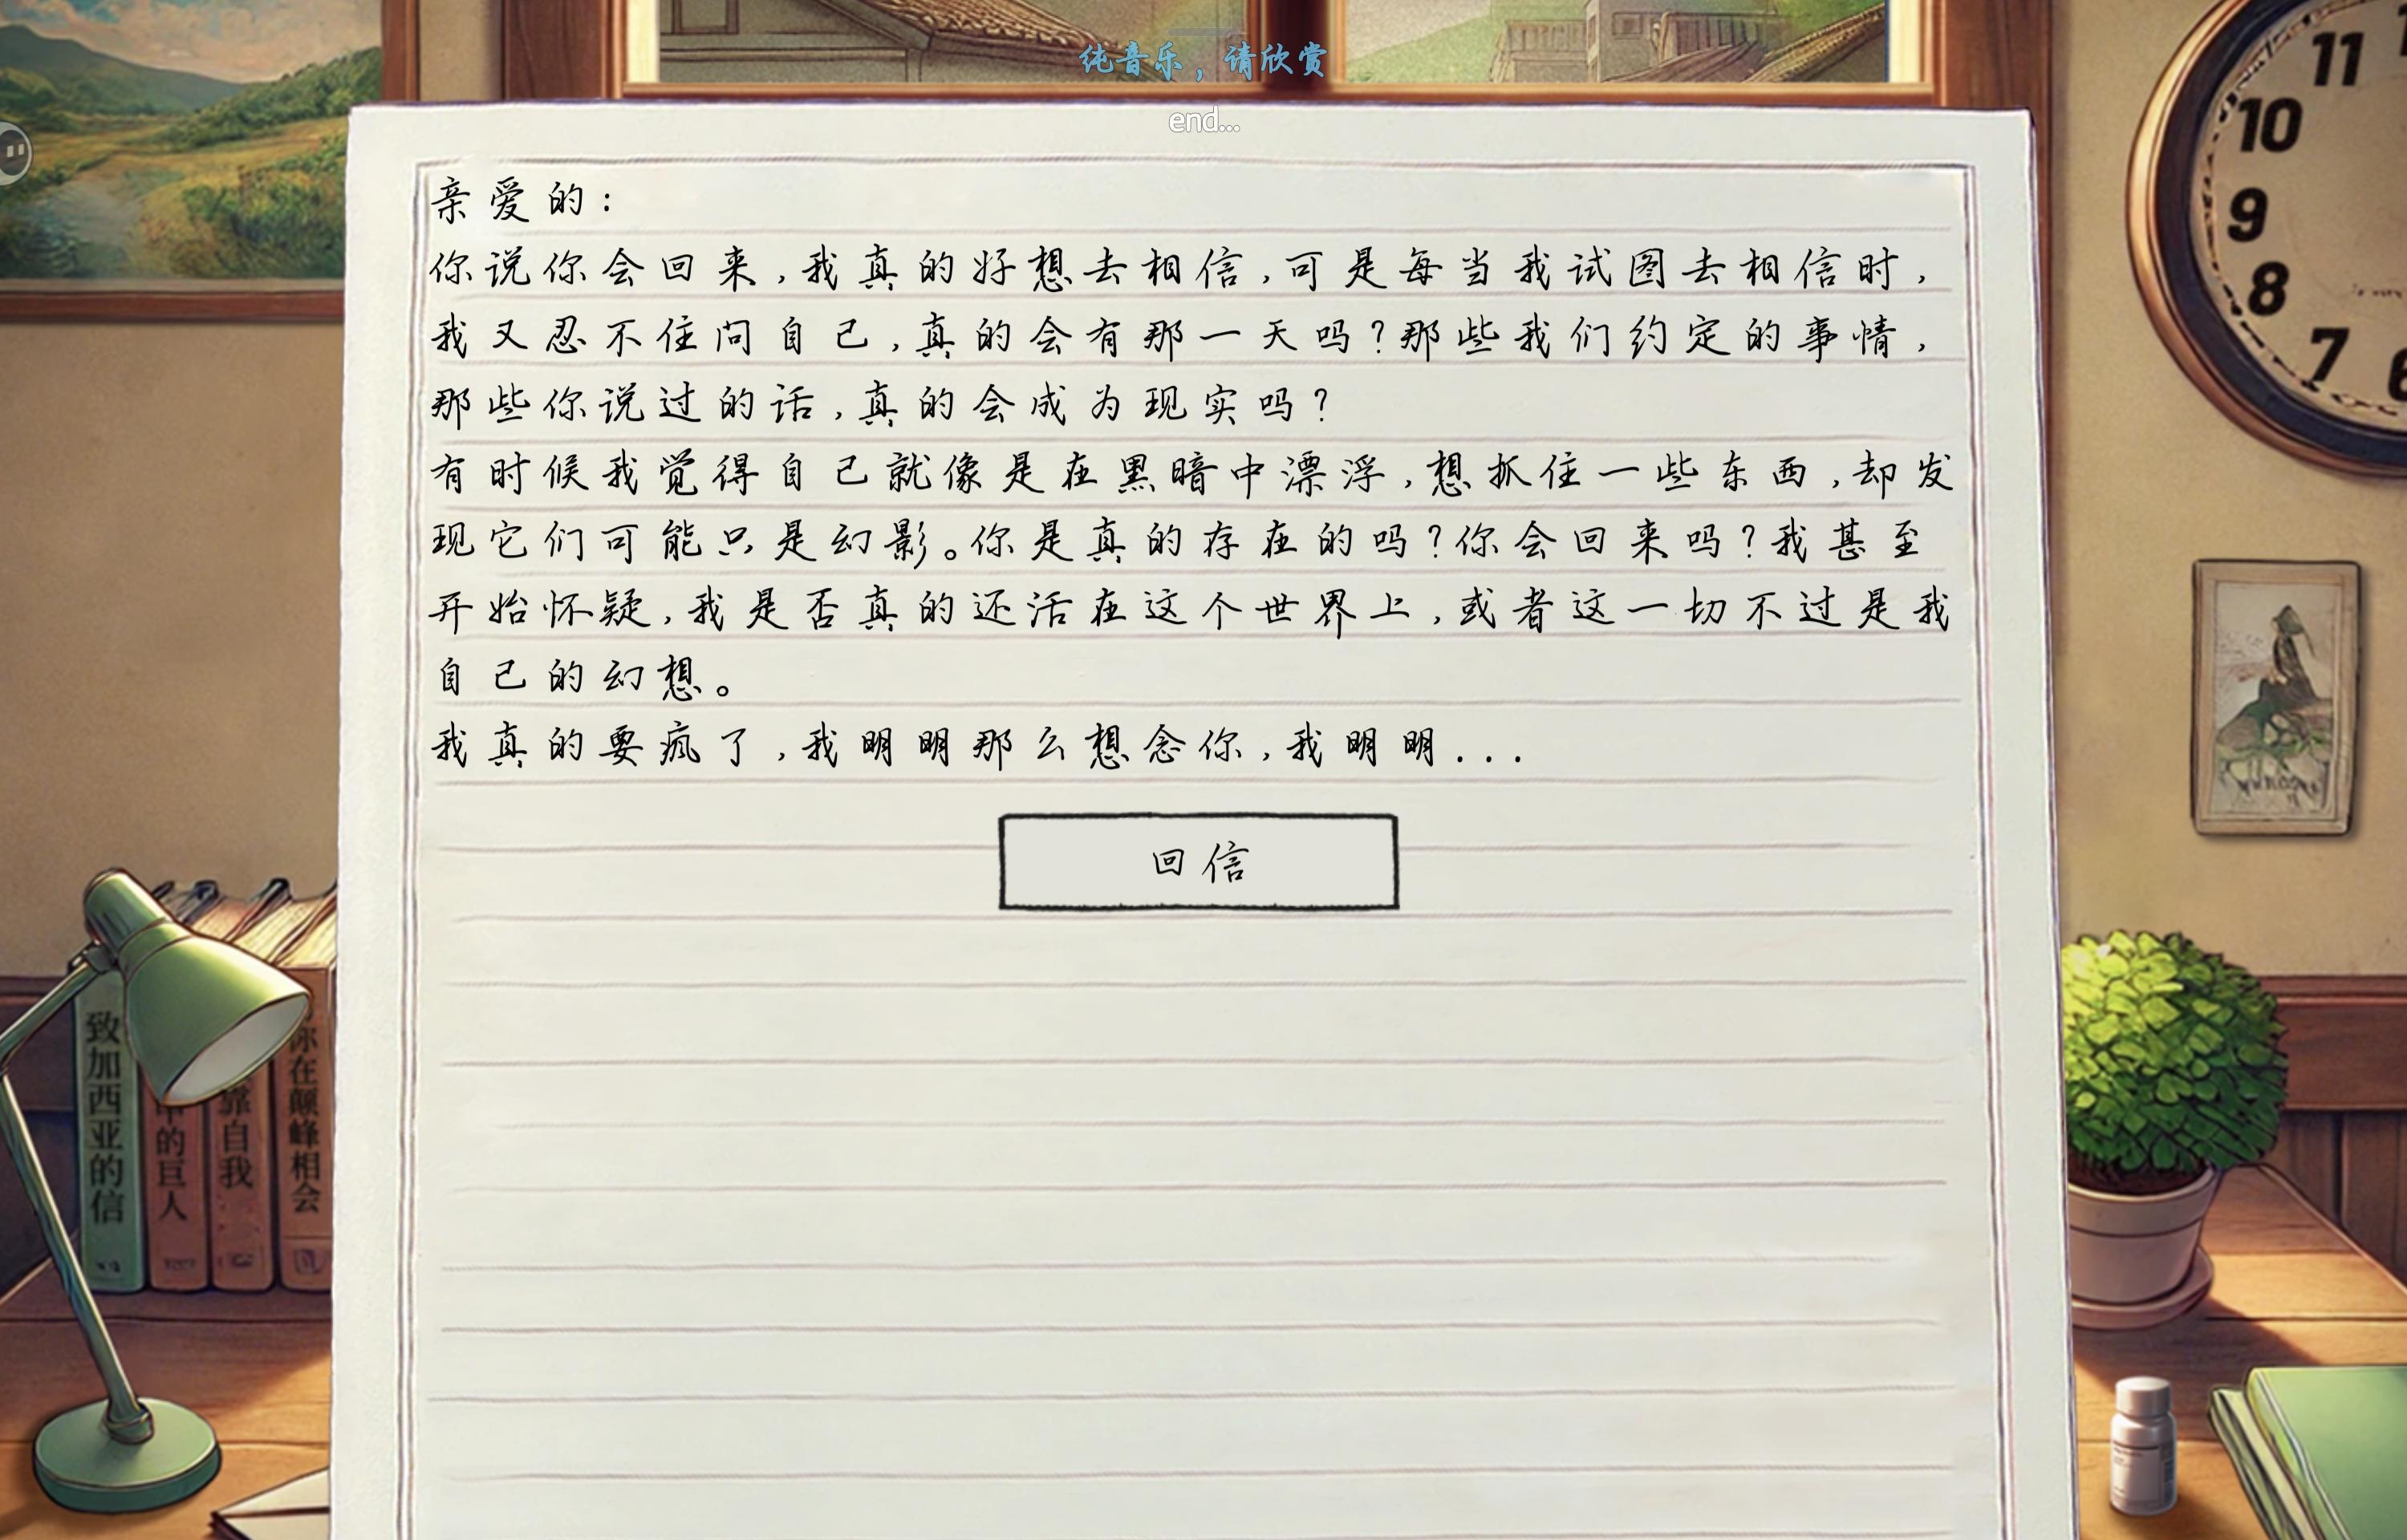 纯音乐，请欣赏
end...
亲爱的:
你说你会回来,我真的好想去相信,可是每当我试图去相信时,
我又忍不住问自己,真的会有那一天吗?那些我们约定的事情,
那些你说过的话,真的会成为现实吗?
有时候我觉得自己就像是在黑暗中漂浮,想抓住一些东西,却发
现它们可能只是幻影。你是真的存在的吗?你会回来吗?我甚至
开始怀疑,我是否真的还活在这个世界上,或者这一切不过是我
自己的幻想。
我真的要疯了,我明明那么想念你,我明明...
回信
致加西亚的信
的巨人
靠自我
你在颠峰相会
11
10
9
8
7
6